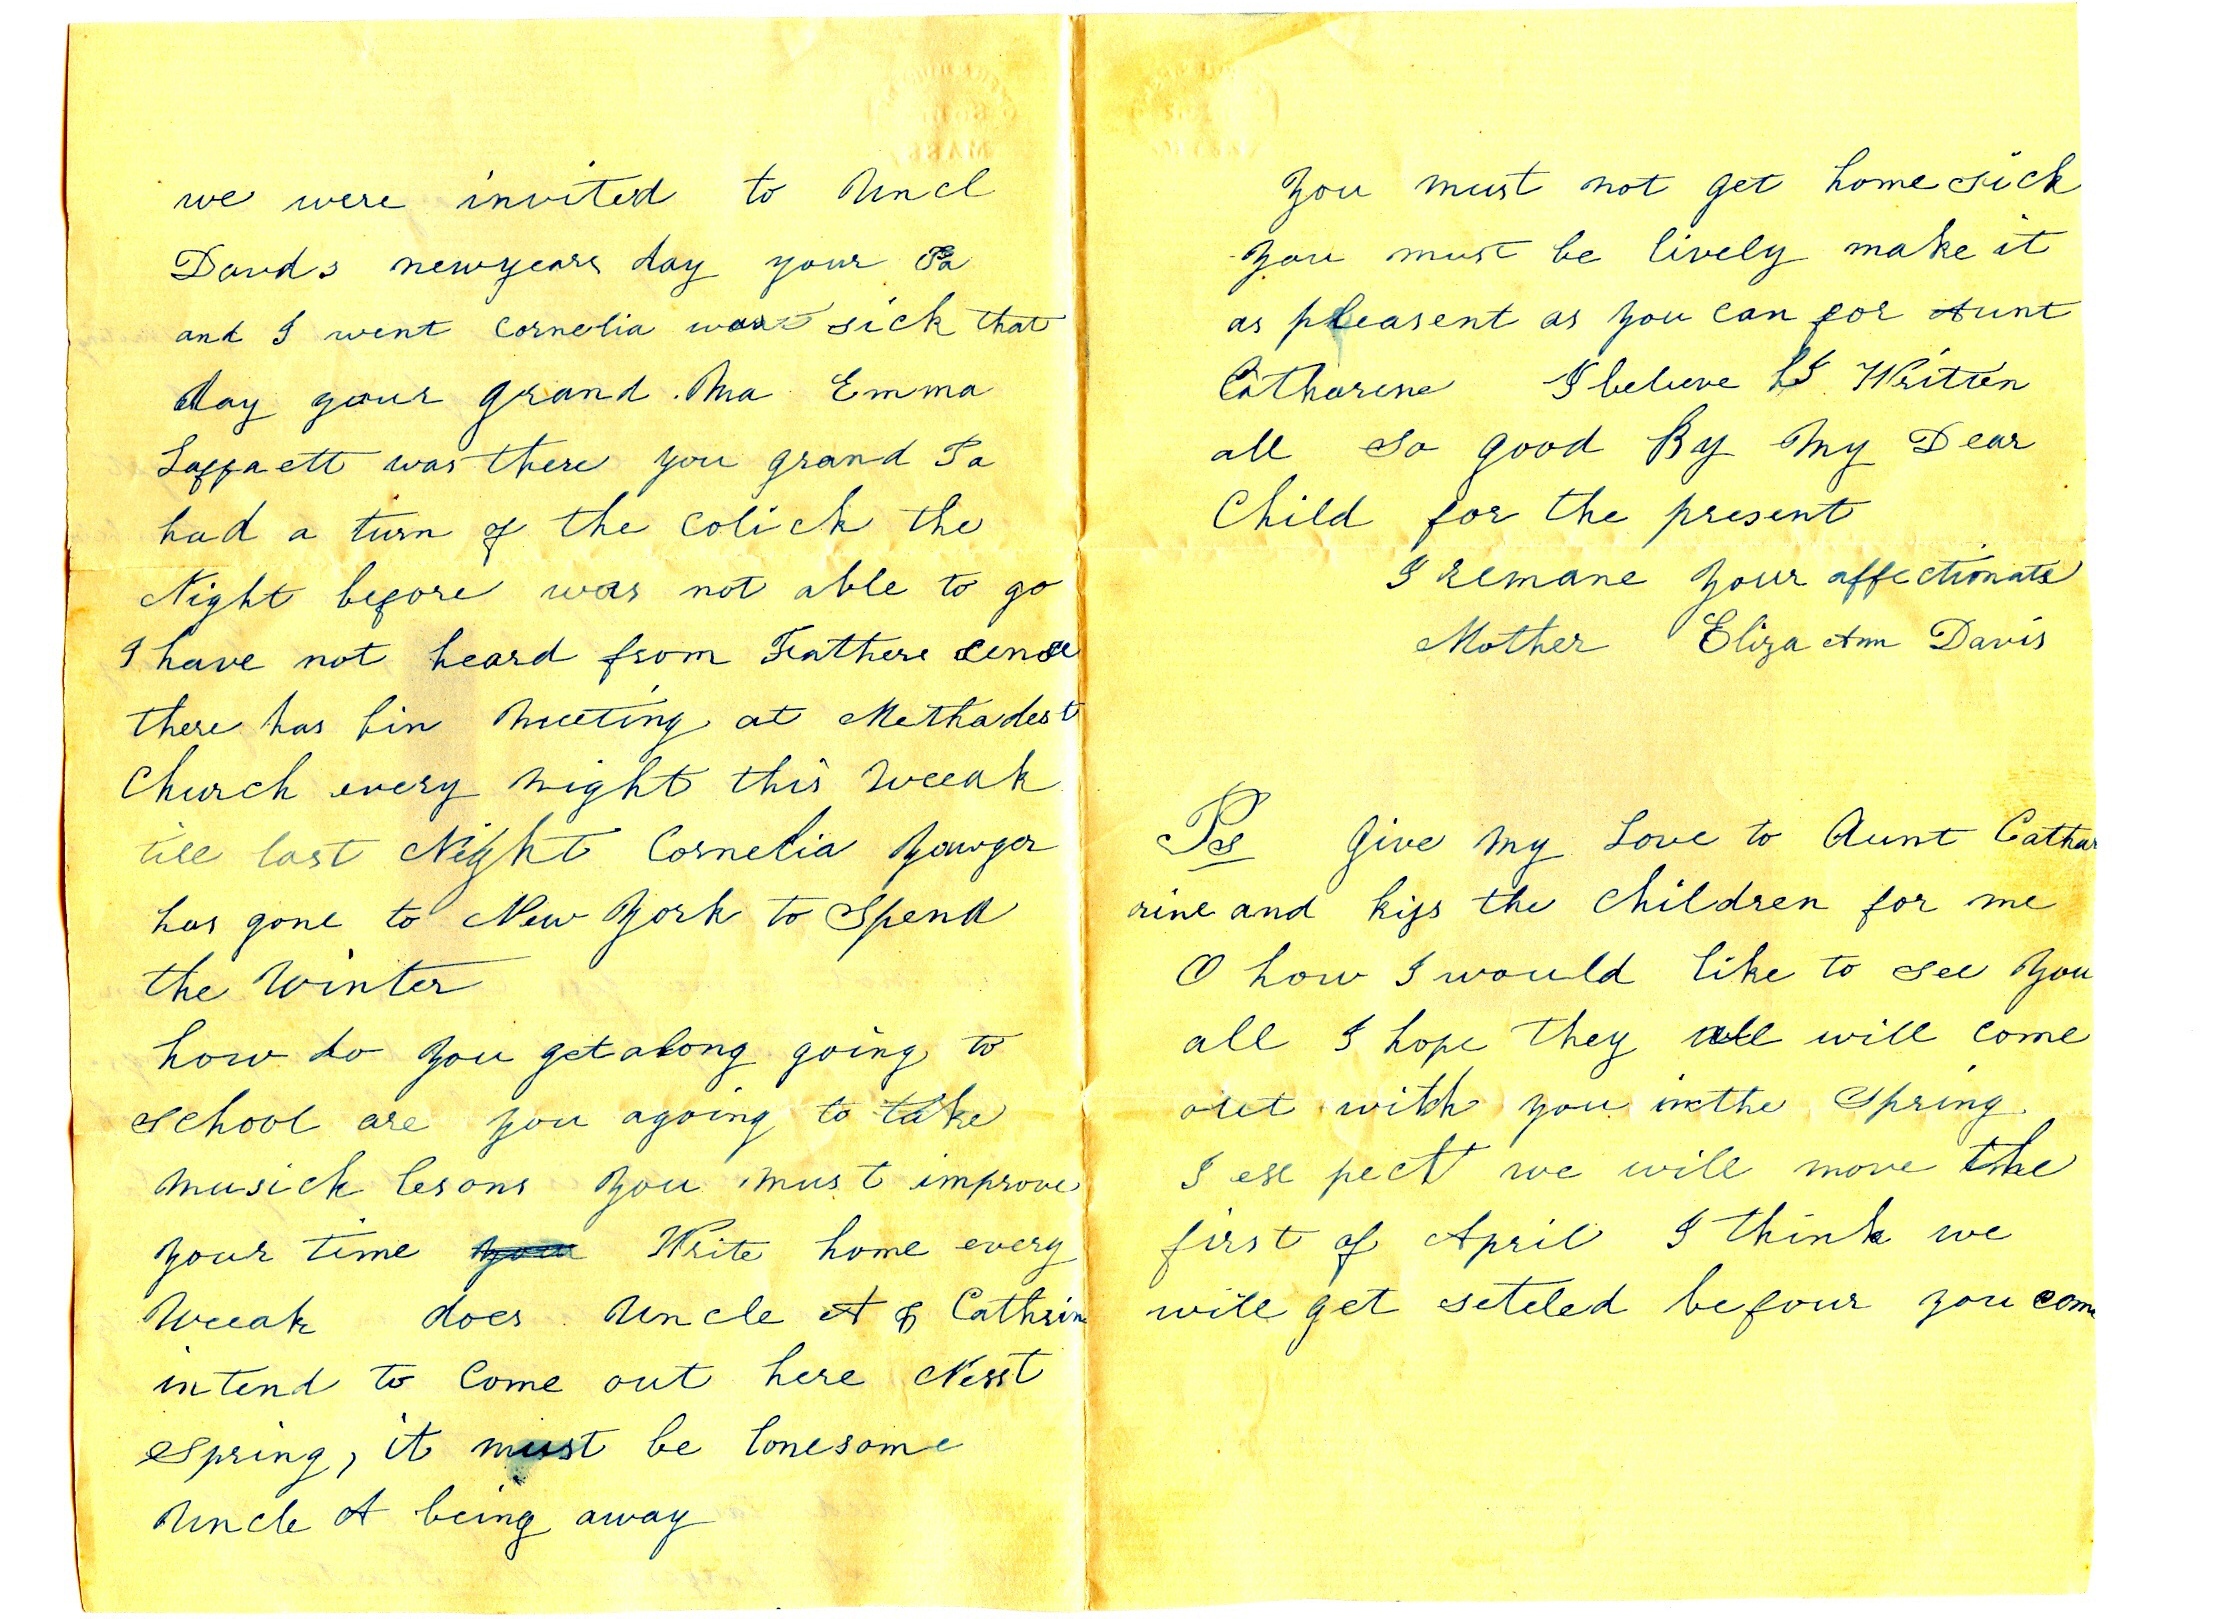 we were invited to Uncl
Davids newyears day your Pa
and I went Cornelia was sick that
day your grand Ma Emma
Laffaett was there you grand Pa
had a turn of the colick the
Night before was not able to go
I have not heard from
there has bin meeting at Methadest
Church every night this weeak
till last Night Cornelia Yawger
has gone to New York to Spend
the Winter
how do you get along going to
School are you agoing to take
musick lesons you must improve
your time you Write home every
weeak does Uncle A & Cathrin
intend to Come out here Next
Spring, it must be lonesome
Uncle A being away
you must not get home sick
you must be lively make it
as pleasent as you can for Aunt
Catharene I beleve I Written
all so good By My Dear
Child for the present
I remane your affectionate
Mother Eliza Ann Davis
Ps Give my Love to Aunt Catha
rine and kiss the Children for me
O how I would like to see you
all I hope they all will come
out with you in the Spring
I ex pect we will move the
first of April I think we
will get seteled befour you com